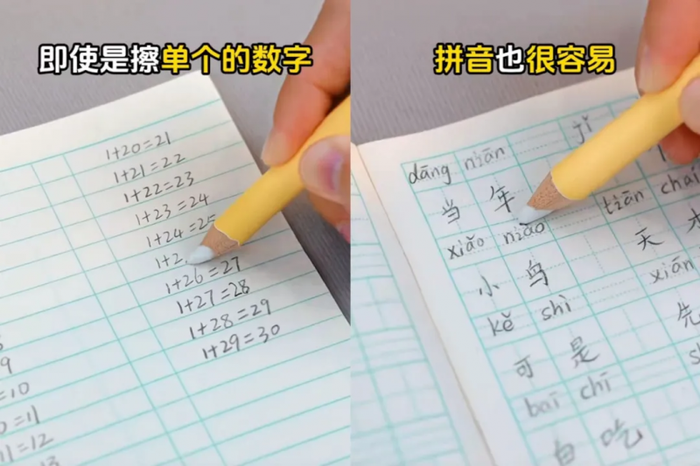 即使是擦单个的数字
1+20=21
1+21=22
1+22=23
1+23=24
1+24=25
1+2
1+26=27
1+27=28
1+28=29
1+29=30
=10
=11
11=12
拼音也很容易
dāng nián jǐ
当年
xiǎo niǎo tiān chái
小鸟 天
kě shì xiān
可是 先
bái chī
白吃